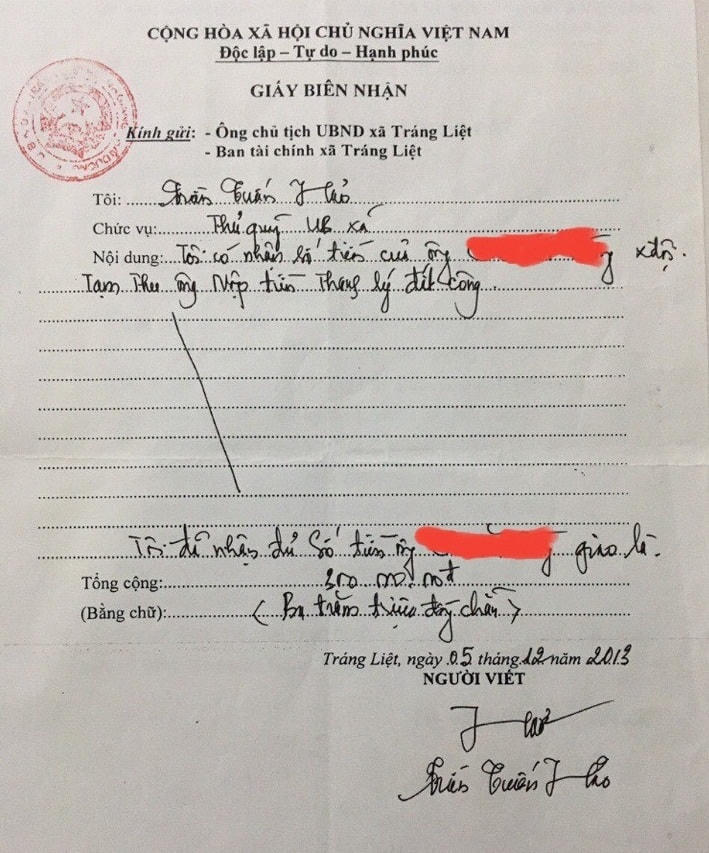 CỘNG HÒA XÃ HỘI CHỦ NGHĨA VIỆT NAM
Độc lập – Tự do – Hạnh phúc
GIẤY BIÊN NHẬN
Kính gửi: - Ông chủ tịch UBND xã Tráng Liệt
- Ban tài chính xã Tráng Liệt
Tôi: Trần Tuấn
Chức vụ: Thủ quỹ UB xã
Nội dung: Tôi có nhận số tiền của ông
Tạm Thu ông Nộp tiền Thanh lý đất công
Tôi đã nhận đủ Số tiền ông giao là.
Tổng cộng: 300.000.000đ
(Bằng chữ): ( Ba trăm triệu đồng chẵn )
Tráng Liệt, ngày 05 tháng 12 năm 2013
NGƯỜI VIẾT
Trần Tuấn